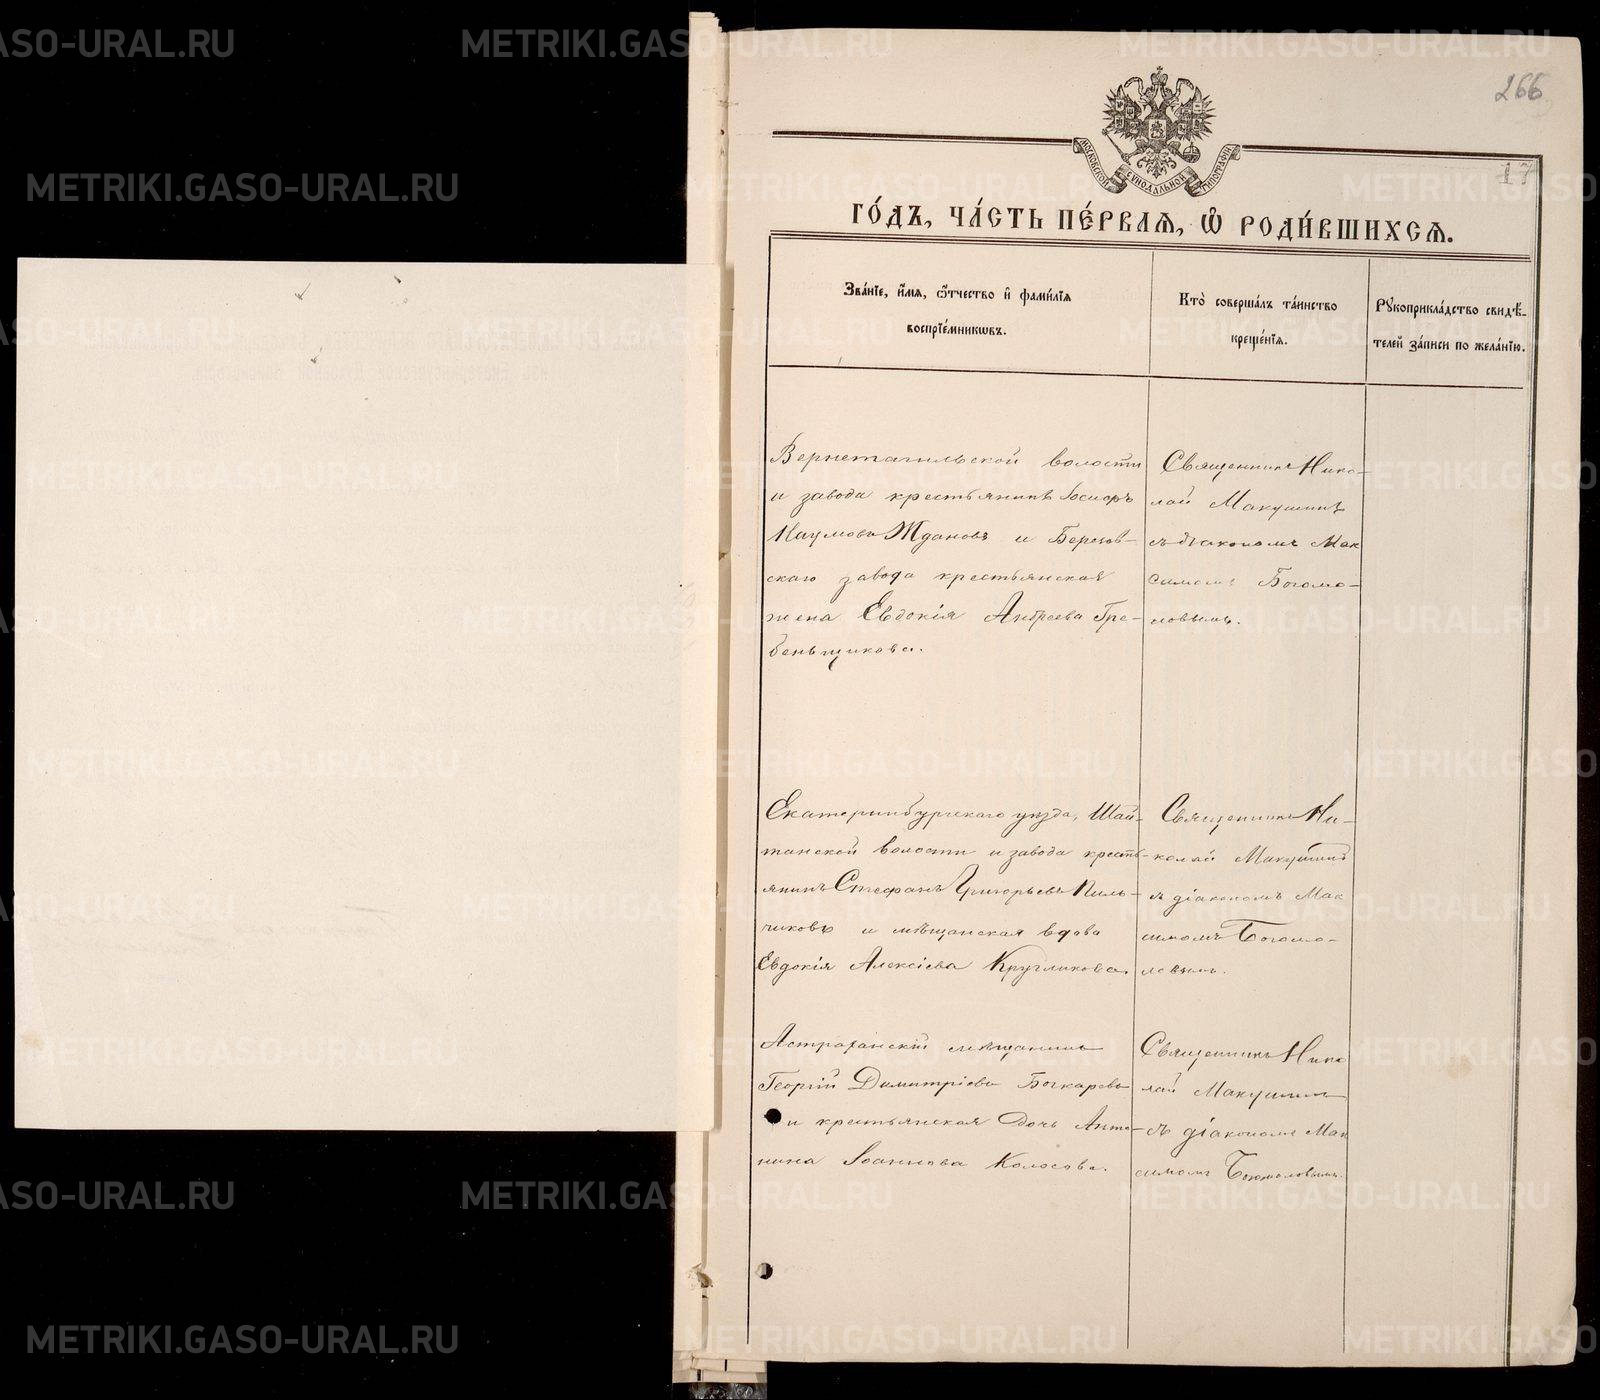 266
17
МОСКОВСКОЙ СѴНОДАЛЬНОЙ ТИПОГРАФІИ
ГО́ДЪ, ЧА́СТЬ ПЕ́РВАЯ, Ѽ РОДИ́ВШИХСЯ.
Зва́нїе, и҆́мѧ, ѻ҆́тчество и҆ фами́лїѧ
воспрїе́мникѡвъ.
Кто̀ соверша́лъ та́инство
креще́нїѧ.
Рꙋкоприкла́дство свидѣ́-
телей за́писи по жела́нїю.
Верхнетагильской волости
и завода крестьянинъ
Наумовъ Ждановъ и Березов-
скаго завода крестьянская
жена Евдокія Андреева Гре-
беньщикова.
Священникъ Нико-
лай Макушинъ
съ діакономъ Мак
симомъ Богомо-
ловымъ.
Екатеринбургскаго уѣзда, Шай-
танской волости и завода кресть-
янинъ Стефанъ Григорьевъ Пиль-
чиковъ и мѣщанская вдова
Евдокія Алексіева Кругликова.
Священникъ Ни-
колай Макушинъ
съ діакономъ Мак
симомъ Богомо-
ловымъ.
Астраханскій мѣщанинъ
Георгій Димитріевъ Бочкаревъ
и крестьянская дочь Анто-
нина Іоаннова Колосова.
Священникъ Нико
лай Макушинъ
съ діакономъ Мак
симомъ Богомоловымъ.
METRIKI.GASO-URAL.RU